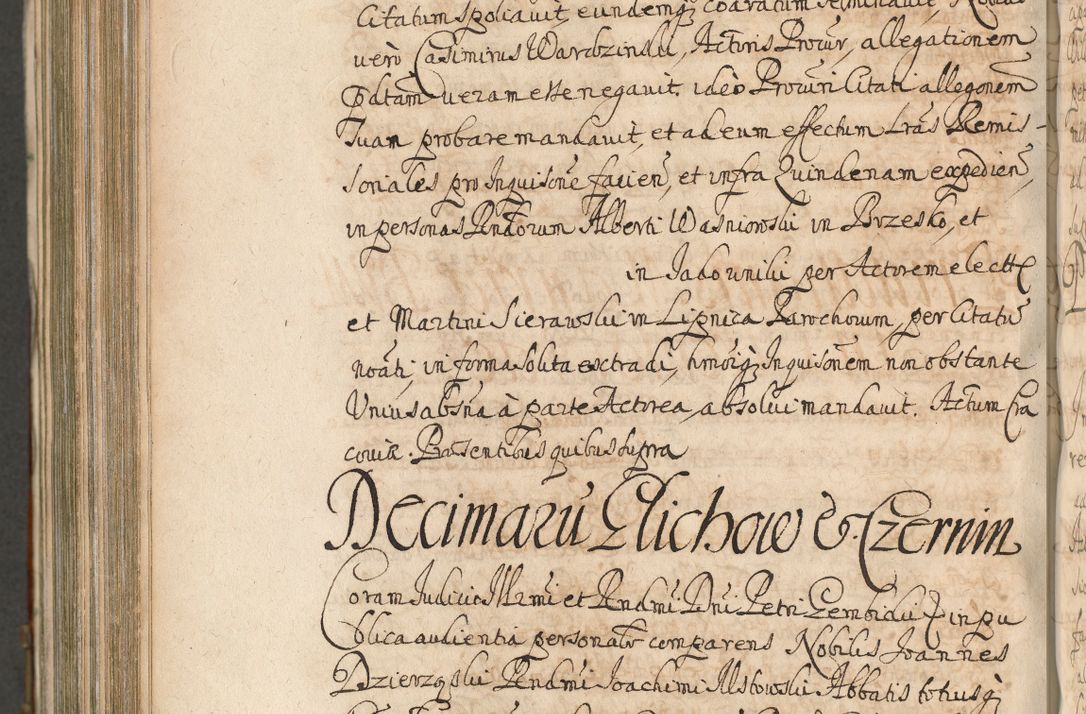 Citatum spoliavit, eundemq coaratum seminavit,
vero Casimirus Wardzinski, Actoris Procur, allegationem
pdtam veram esse negavit. ideo Procuri Citati allegonem
suam probare mandavit, et ad eum effectum Lras Remis-
soriales pro Inquisone facien, et infra Quindenam expedien,
in personas Rndorum Alberti Wasniowski in Brzesko, et
in Jadowniki per Actorem electt
et Martini Sierawski in Lipnica Parochorum, per Citatu
noati, in forma solita extradi, hmoiq Inquisonem non obstante
Unius absna à parte Actorea, absolvi mandavit. Actum Cra
coviæ. Præsentibus quibus supra
Decimaru Glichow & Czernin
Coram Judicio Illrmi et Rndmi Dni Petri Gembicki in pu
blica audientia personalr comparens Nobilis Joannes
Dzierzqski Rndmi Joachimi Ilstowski Abbatis totiusq